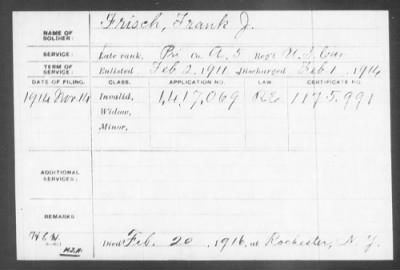 NAME OF SOLDIER: Frisch, Frank J.
SERVICE: Late rank, Pri Co. A, 5 Reg't U.S. Cav
TERM OF SERVICE: Enlisted Feb 2, 1911 Discharged Feb 1, 1914
DATE OF FILING. APPLICATION NO. LAW. CERTIFICATE NO.
1914 Nov 14 Invalid, 1,417,069 1175,991
Widow,
Minor,
ADDITIONAL SERVICES:
REMARKS:
Died Feb. 20, 1916, at Rochester, N.Y.